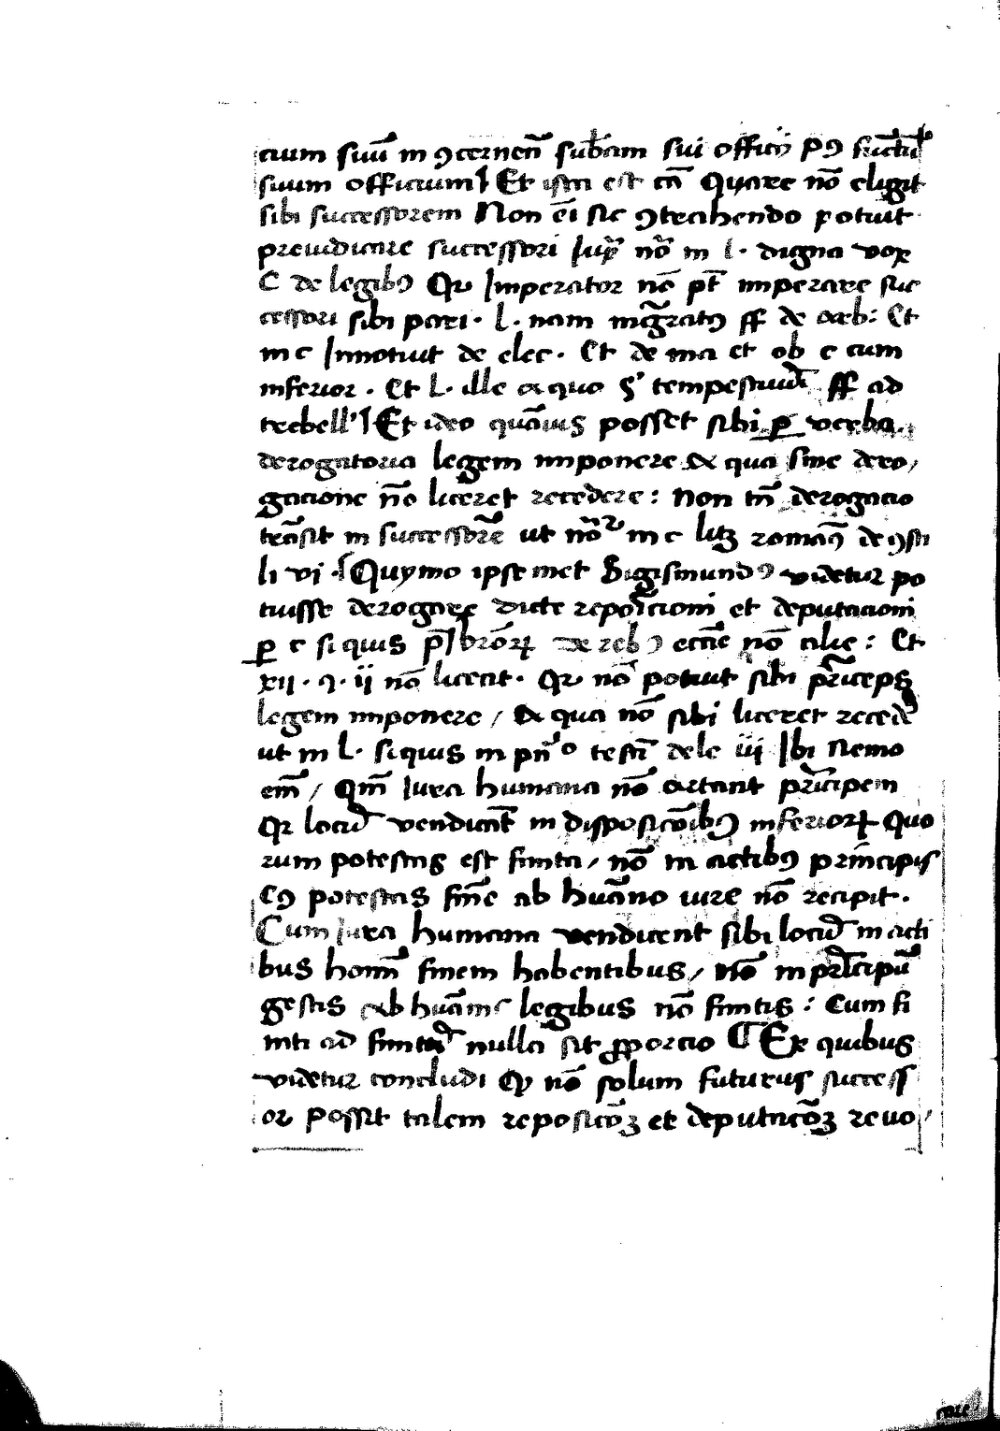 cium suū in ꝯcernen̄ subām sui officij ꝑꝯ
suum officium Et ista est cā Quare nō eligit
sibi successorem Non eī sic ꝯtrahendo potuit
preiudicare successori Iux̄ nō in l. digna vox
C de legibꝯ Qr Imperator nō pt̄ imperare suc
cessori sibi pari. l. nam mgr̄atꝯ ff de arb: Et
in c Innotuit de elec. Et de ma et ob c cum
inferior. Et l. ille a quo §' tempestiuū ff ad
trebell' Et ideo quāuis posset sibi ꝑ verba
derogatoria legem imponere A qua sine dero/
gacione nō liceret recedere: Non tn̄ derogacio
trāsit in successorē ut nōr in c litꝫ romāꝯ de ꝯsti
li vi. Quymo ipsemet Sigismundꝯ videtur po
tuisse derogare dicte reposicioni et deputacioni
ꝑ c si quis p̄sbr̄orꝝ de rebꝯ eccīe nō alie: Et
xii. q. ii nō liceat. Qr nō potuit sibi prīceps
legem imponere / A qua nō sibi liceret recedē
ut in l. si quis in pn̄º testī de le iii Ibi Nemo
em̄ / Qm̄ Iura humana nō artant prīcipem
Qr locū vendicāt in disposicōibꝯ inferiorꝝ Quo
rum potestas est finita / nō in actibꝯ principis
Cꝯ potestas finē ab huāno iure nō recipit.
Cum Iura humana vendicent sibi locū in acti
bus hoīm finem habentibus / nō in prīcipū
gestis ab huānis legibus nō finitis: Cum fi
niti ad finitū nulla sit ꝓporcio ¶ Ex quibus
videtur concludi Qꝫ nō solum futurus success
or possit talem reposicōꝫ et deputacōꝫ reuo/